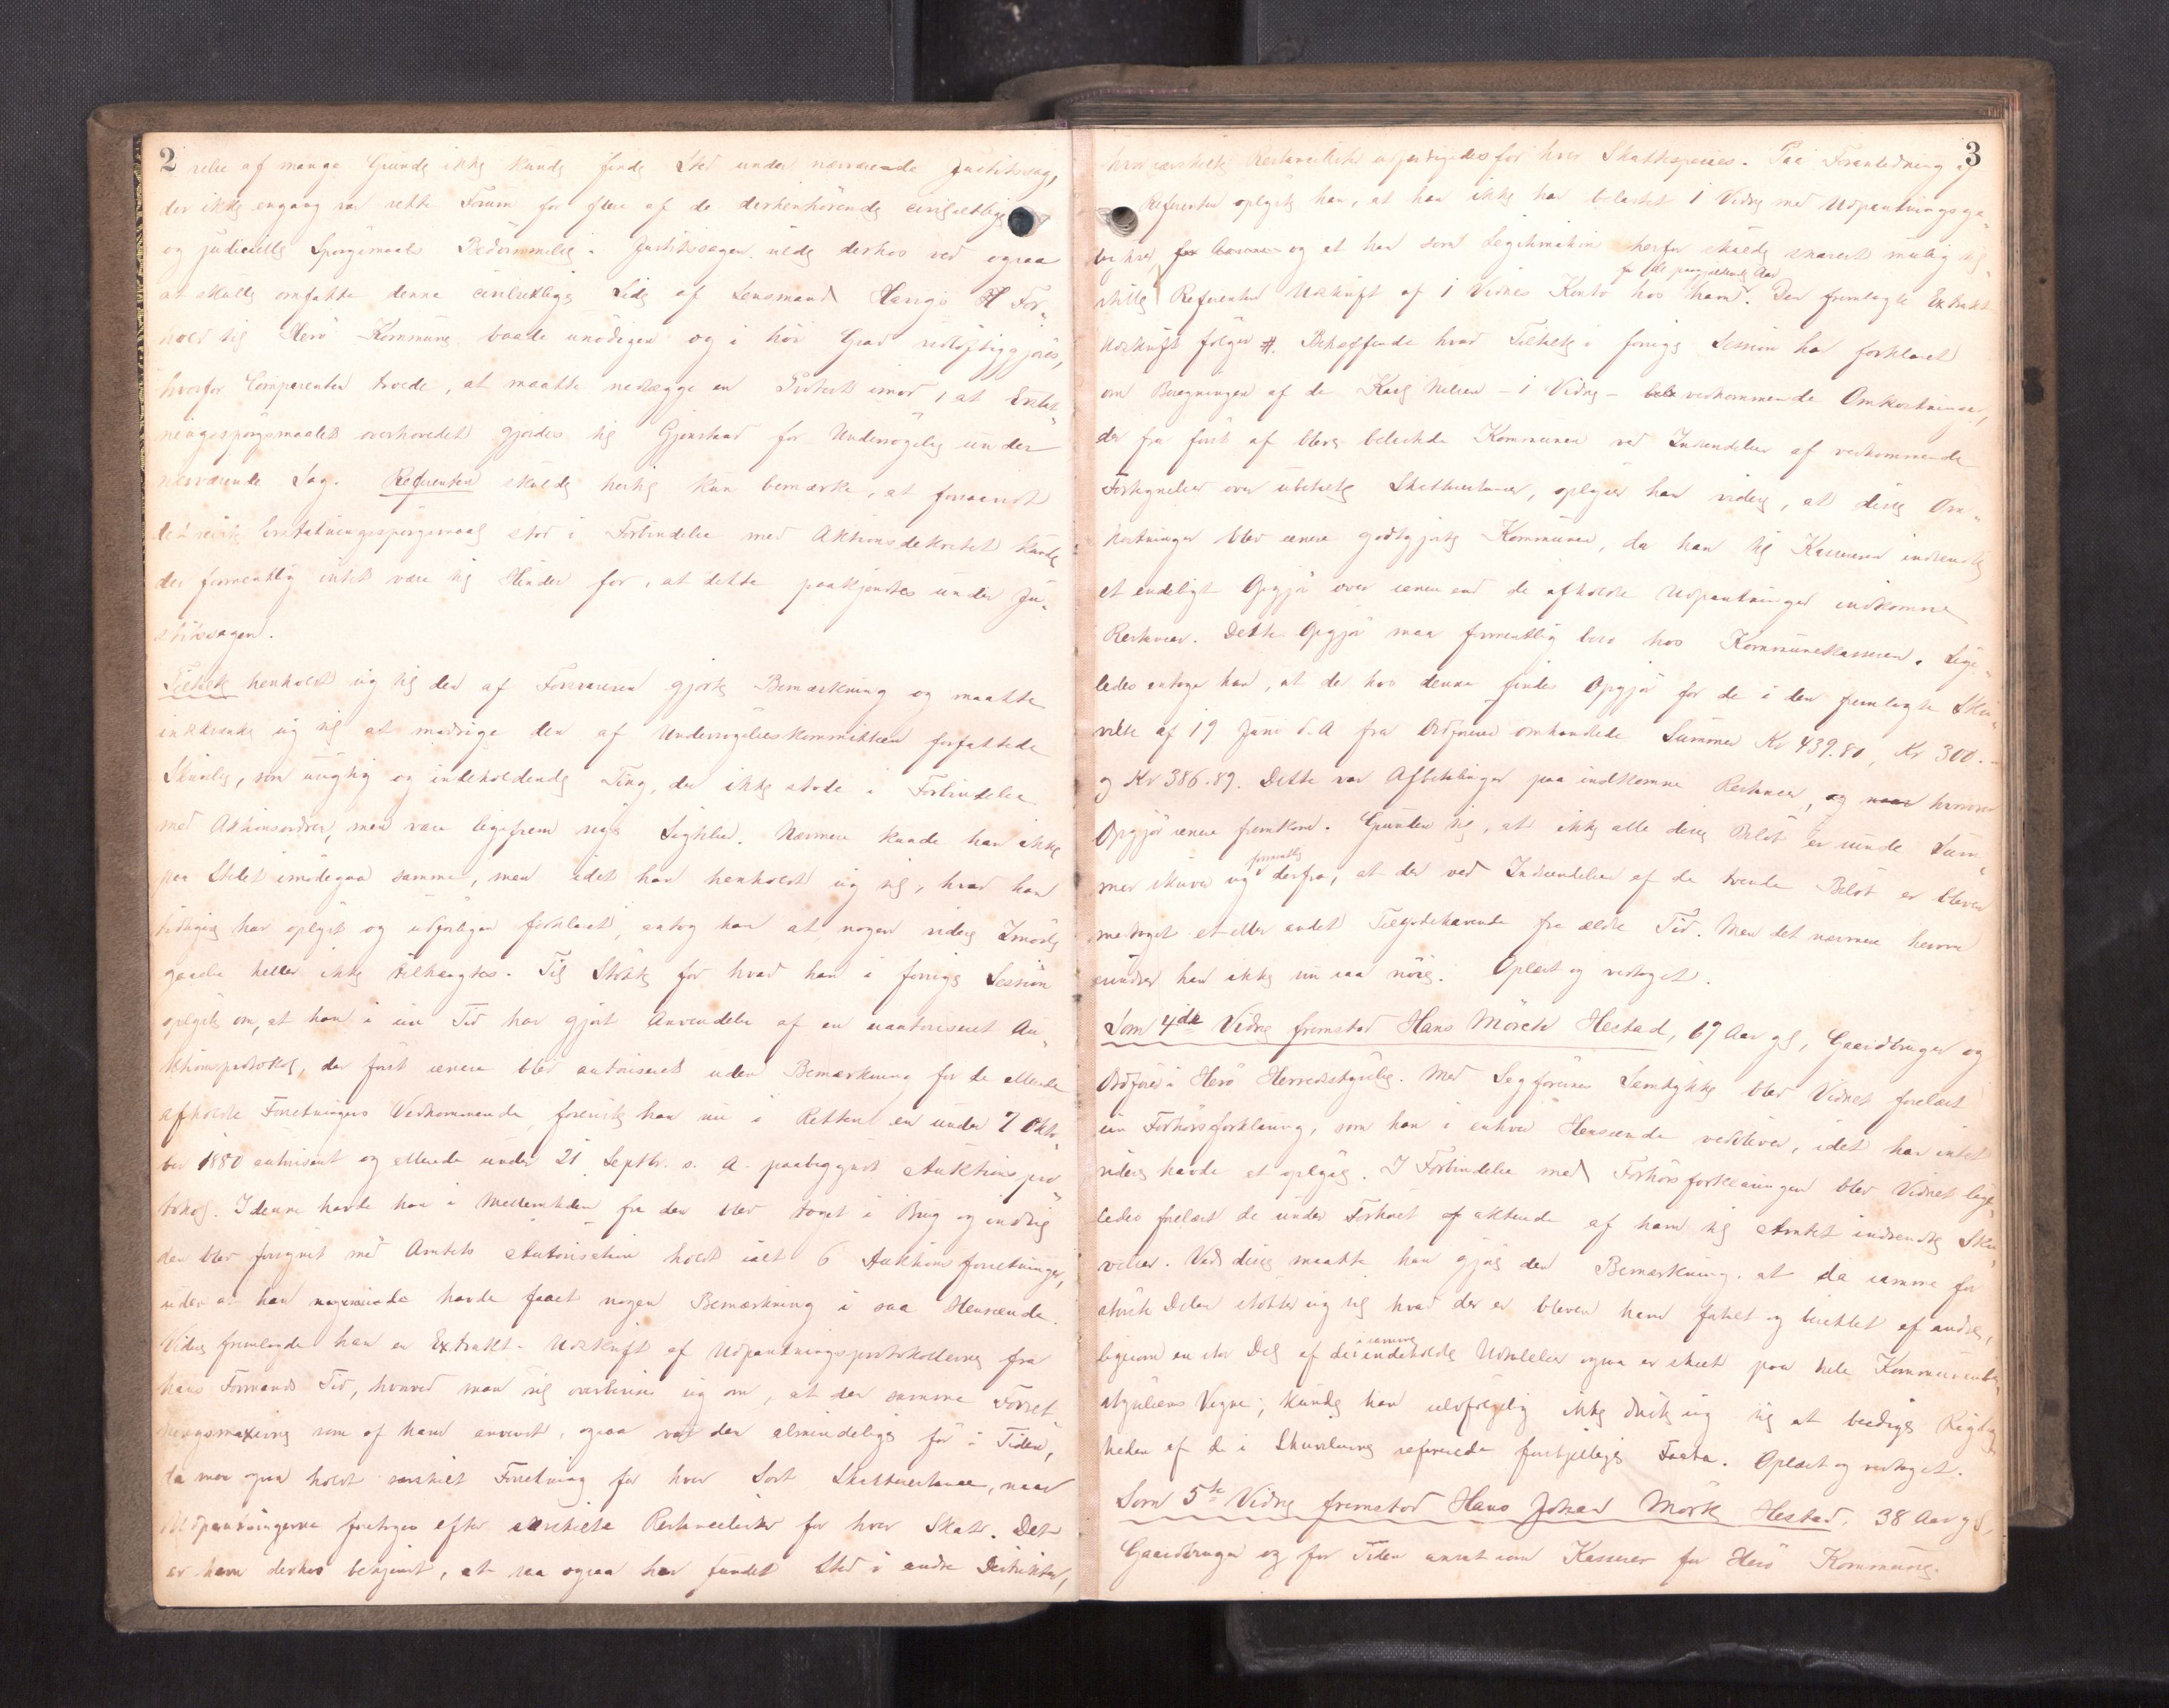 2
relse af mange Grunde ikke kunde finde Sted under nærværende Justitssag,
der ikke engang var rette Forum for flere af de derhenhörende civilretlige
og judicielle Spörgsmaals Bedömmelse. Justitssagen vilde derhos ved ogsaa
at skulle omfatte denne civilretlige Side af Lensmand Haugs For-
hold til Herö Kommune baade unödigen og i höi Grad vidtlöftiggjöres,
hvorfor Comparenten troede, at maatte nedlægge en Protest imod, at Erstat-
ningsspörgsmaalet overhovedet gjordes til Gjenstand for Undersögelse under
nærværende Sag. Referenten skulde hertil kun bemærke, at forsaavidt
Erstatningsspörgsmaal stod i Forbindelse med Aktionsdekretet kunde
der formentlig intet være til Hinder for, at dette paakjendtes under Ju-
stitssagen.
Tiltalte henholdt sig til den af Forsvareren gjorte Bemærkning og maatte
indskrænke sig til at modsige den af Undersögelseskommitteen forfattede
Skrivelse, som urigtig og indeholdende Ting, der ikke stode i Forbindelse
med Aktionsordren, men vare ligefrem nye Sigtelser. Nærmere kunde han ikke
paa Stedet imödegaa samme, men idet han henholdt sig til, hvad han
tidligere har oplyst og udförligen forklaret, antog han at nogen videre Imöde-
gaaelse heller ikke tiltrængtes. Til Stötte for hvad han i forrige Session
oplyste om, at han i sin Tid har gjort Anvendelse af en uautoriseret Au-
ktionsprotokol, der först senere blev autoriseret uden Bemærkning for de allerede
afholdte Forretningers Vedkommende, foreviste han nu i Retten en under 7 Okto-
ber 1880 autoriseret og allerede under 21 Septbr. s. A. paabegyndt Auktionspro-
tokol. I denne havde han i Mellemtiden fra den blev taget i Brug og indtil
den blev forsynet med Amtets Autorisation holdt ialt 6 Auktionsforretninger,
uden at han nogensinde havde faaet nogen Bemærkning i saa Henseende.
Videre fremlagde han en Extrakt-Udskrift af Udpantningsprotokollerne fra
hans Formands Tid, hvorved man vil overbevise sig om, at den samme Forret-
ningsmaxime som af ham anvendt, ogsaa var den almindelige för i Tiden,
da man ogsaa holdt særskilt Forretning for hver Sort Skatterestance, naar
Udpantningerne foretoges efter særskilte Restancelister for hver Skat. Det
er ham derhos bekjendt, at saa ogsaa har fundet Sted i andre Distrikter,
3
hvor særskilte Restancelister udfærdigedes for hver Skattespecies. Paa Foranledning af
Referenten oplyste han, at han ikke har belastet 1 Vidne med Udpantningsge-
og at han som Legitimation herfor skulde snarest mulig til-
for de paagjældende Aar
stille Referenten Udskrift af 1 Vidnes Konto hos ham. Den fremlagte Extrakt
Udskrift fölger #. Betræffende hvad Tiltalte i forrige Session har forklaret
om Beregningen af de Karl Nilsen - 1 Vidne - vedkommende Omkostninger,
der fra först af bleve belastede Kommunen ved Indsendelsen af vedkommende
Fortegnelser over ubetalte Skatterestancer, oplyser han videre, at disse Om-
kostninger blev senere godtgjorte Kommunen, da han til Kassereren indsendte
et endeligt Opgjör over senere end de afholdte Udpantninger indkomne
Restancer. Dette Opgjör maa formentlig bero hos Kommunekassereren. Lige-
ledes antager han, at der hos denne findes Opgjör for de i den fremlagte Skri-
velse af 19 Juni d. A fra Ordföreren omhandlede Summer Kr 439.80, Kr 300.-
og Kr 386.89. Dette var Afbetalinger paa indkomne Restancer, og hvorover
Opgjör senere fremkom. Grunden til, at ikke alle disse Belöb er runde Sum-
formentlig
mer skriver sig derfra, at der ved Indsendelsen af de tvende Belöb er bleven
medtaget et eller andet Tilgodehavende fra ældre Tid. Men det nærmere herom
mindes han ikke nu saa nöie. Oplæst og vedtaget.
Som 4de Vidne fremstod Hans Mörch Hestad, 67 Aar gl, Gaardbruger og
Ordförer i Herö Herredsstyrelse. Med Sagförernes Samtykke blev Vidnet forelæst
sin Forhörsforklaring, som han i enhver Henseende vedbliver, idet han intet
videre havde at oplyse. I Forbindelse med Forhörsforklaringen blev Vidnet lige-
ledes forelæst de under Forhöret af ham til Amtet indsendte Skri-
velser. Ved disse maatte han gjöre den Bemærkning, at da samme for
störste Delen stötter sig til hvad der er bleven ham fortalt og berettet af andre,
i samme
ligesom en stor Del af de indeholdte Udtalelser ogsaa er skeet paa hele Kommune-
styrelsens Vegne, kunde han selvfölgelig ikke driste sig til at beedige Rigtig-
heden af de i Skrivelserne refererede forskjellige Facta. Oplæst og vedtaget.
Som 5te Vidne fremstod Hans Johan Mörk Hestad, 38 Aar gl,
Gaardbruger og for Tiden ansat som Kasserer for Herö Kommune.